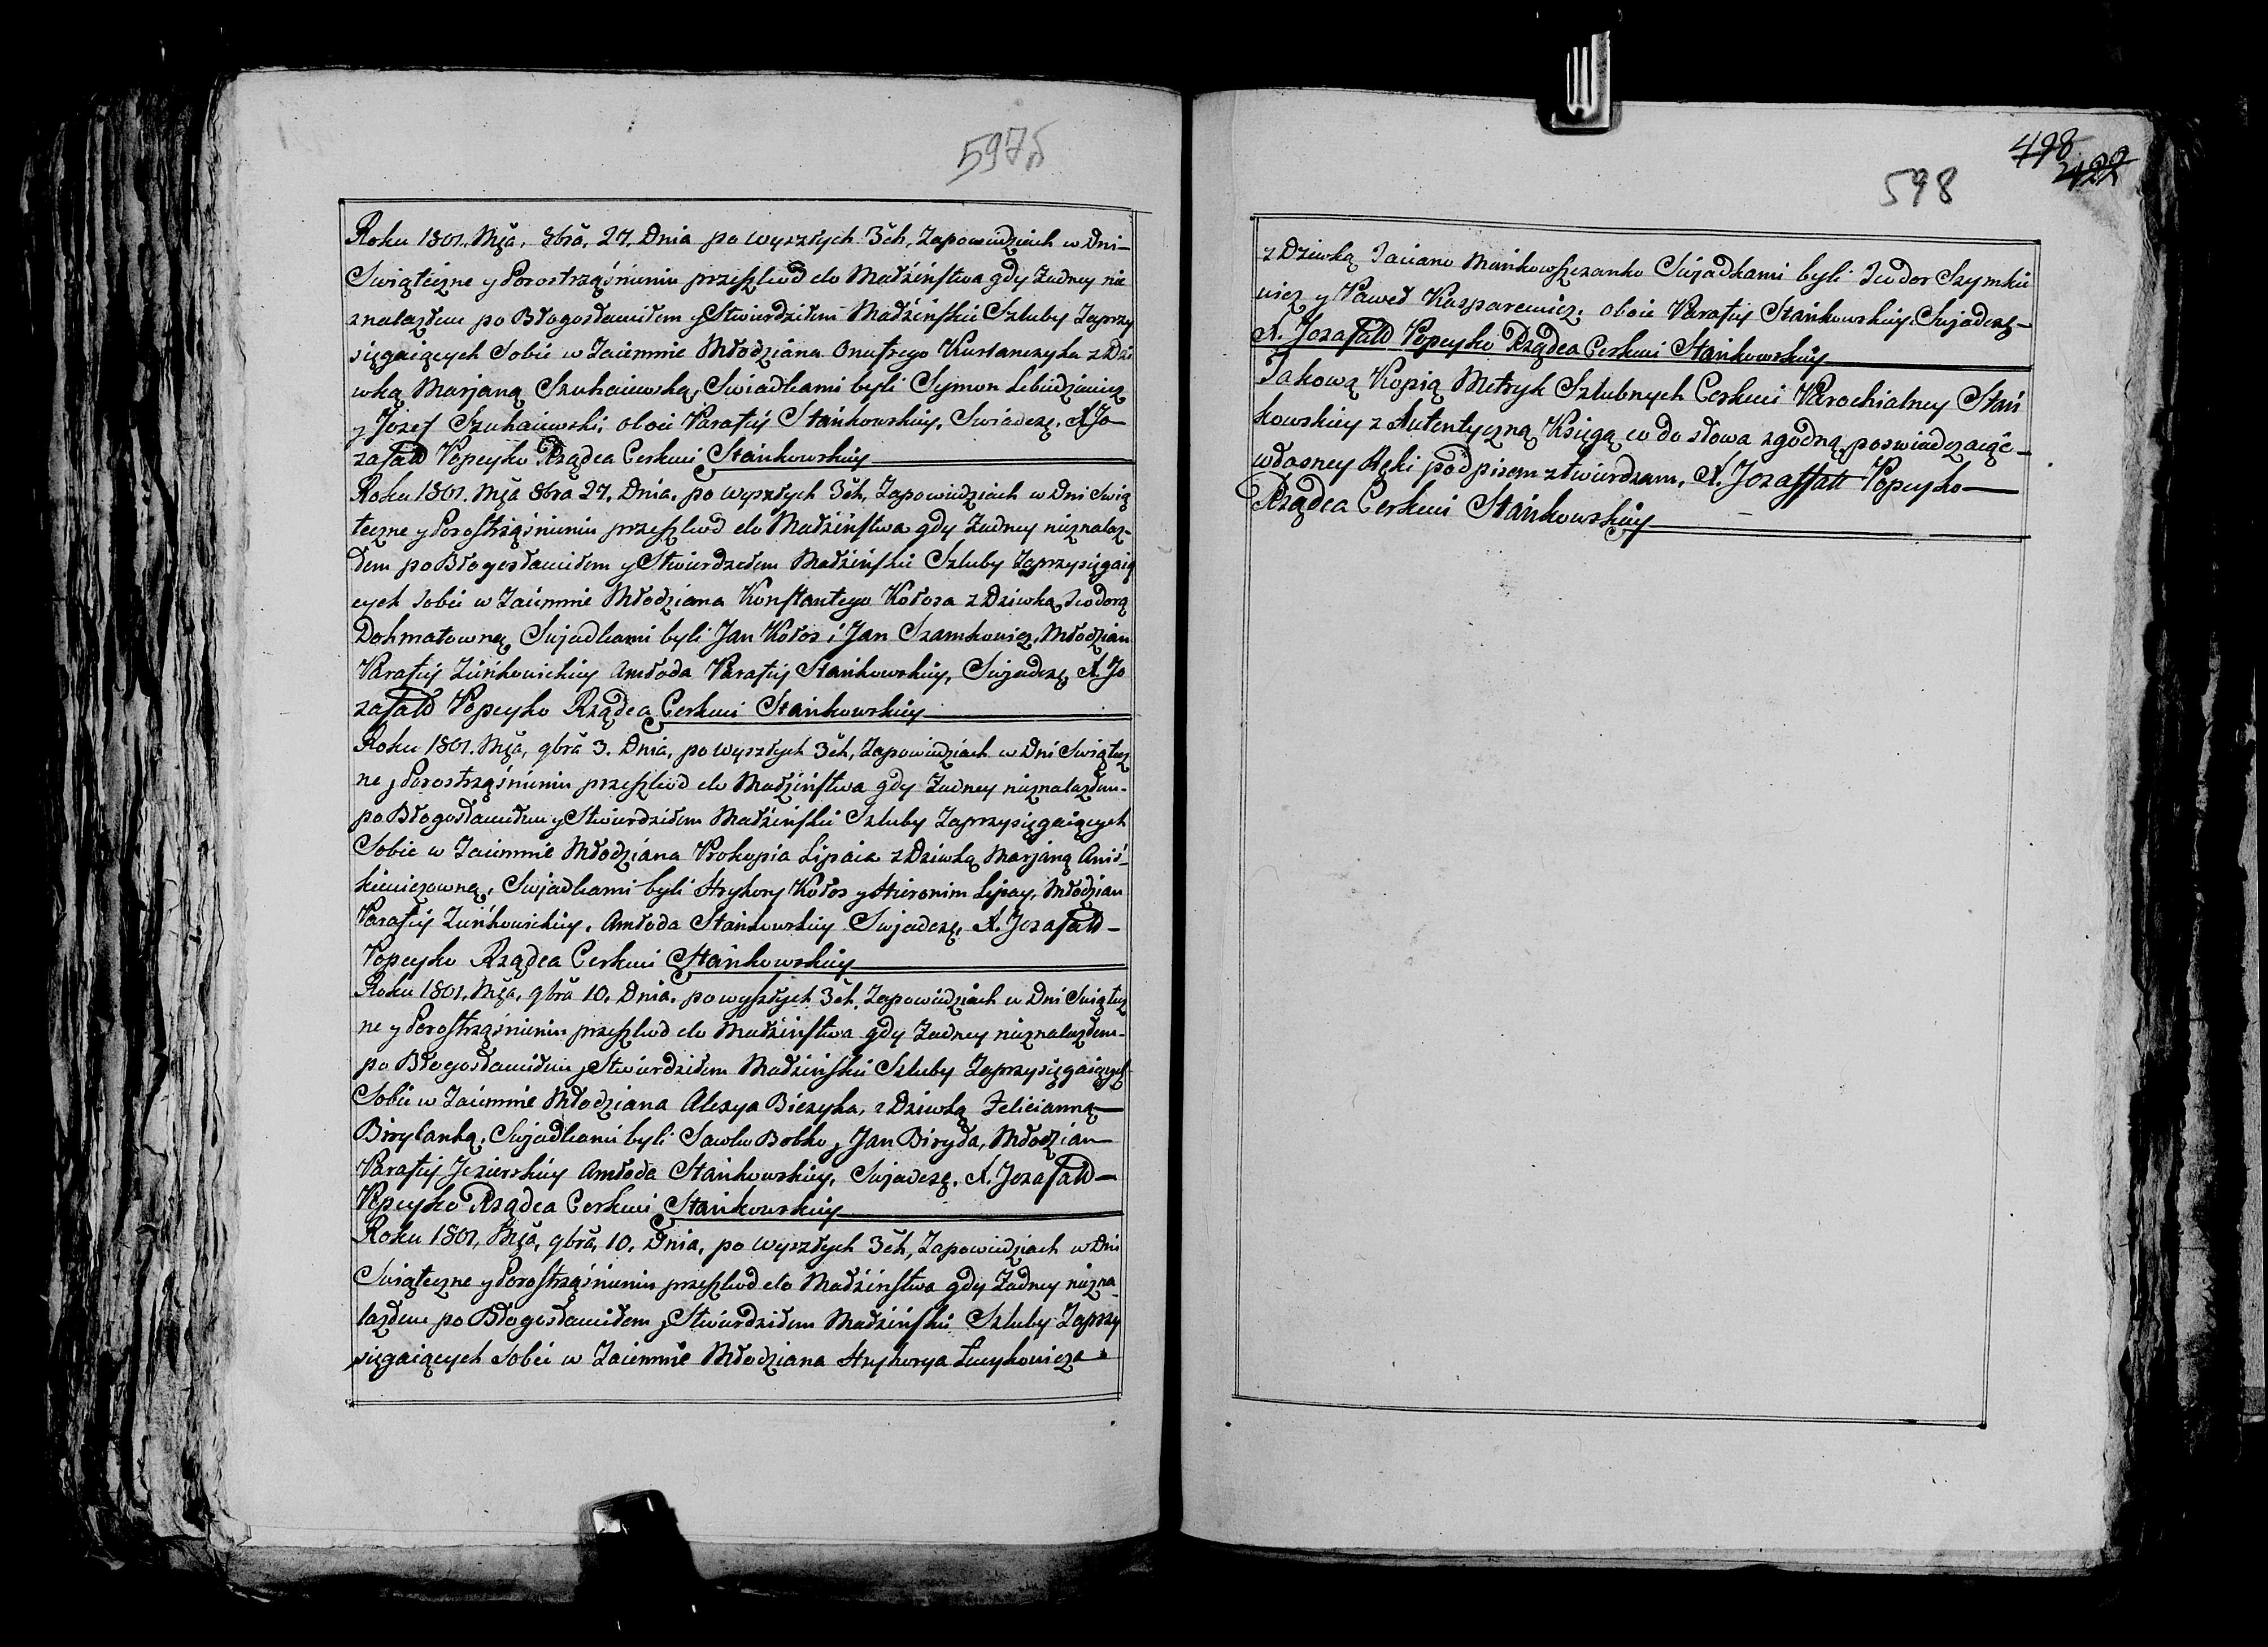 597δ
Roku 1801. Mça, 8bră, 27, Dnia po wyszłych 3ĕh, Zapowiedziach w Dni—
Swiąteczne y Porostrząśnieniu przeszkod do Małżeństwa gdy żadney nie
znalazłem po Błogosławiłem y Stwierdziłem Małżeńskie Szluby Zaprzy
sięgaiących Sobie w Zaiemnie Młodziana Onufrego Kurłanczyka z Dzi
wką Marjaną Szuhaiewską, Swiadkami byli Symon Lebiedziewicz
y Jozef Szuhaiewski, oboie Parafij Stańkowskiey, Swiadczę, X. Jo—
zafatt Popeyko Rządca Cerkwi Stańkowskiey
Roku 1801. Mça 8bra 27, Dnia, po wyszłych 3ĕh, Zapowiedziach w Dni Swią
teczne y Porostrząśnieniu przeszkod do Małżeństwa gdy żadney nieznalaz-
łem po Błogosławiłem y Stwierdziłem Małżeńskie Szluby Zaprzysięgaią
cych Sobie w Zaiemnie Młodziana Konstantego Kołosa z Dziewką Teodorą
Dohmatowną, Swjadkami byli Jan Kołos i Jan Szamkowicz, Młodzian
Parafij Zieńkowickiey Amłoda Parafij Stańkowskiey, Swjadczę X. Jo
zafatt Popeyko Rządca Cerkwi Stańkowskiey
Roku 1801. Mça, 9bră 3. Dnia, po wyszłych 3ĕh, Zapowiedziach w Dni Swiątecz
ne y Porostrząśnieniu przeszkod do Małżeństwa gdy żadney nieznalazłem-
po Błogosławiłem y Stwierdziłem Małżeńskie Szluby Zaprzysięgaiących
Sobie w Zaiemnie Młodziana Prokopia Lipaia z Dziwką Marjaną Aniś-
kiewiczowną, Swjadkami byli Hryhory Kołos y Hieronim Lipay, Młodzian
Parafij Zieńkowickiey, Amłoda Stańkowskiey Swjadczę, X. Jozafatt—
Popeyko Rządca Cerkwi Stańkowskiey
Roku 1801. Mça, 9bră 10. Dnia, po wyszłych 3ĕh, Zapowiedziach w Dni Swiątecz
ne y Porostrząśnieniu przeszkod do Małżeństwa gdy żadney nieznalazłem-
po Błogosławiłem y Stwierdziłem Małżeńskie Szluby Zaprzysięgaiących
Sobie w Zaiemnie Młodziana Alexya Biczyka, z Dziwką Felicianną—
Birylanką, Swjadkami byli Sawka Bobko y Jan Biryła, Młodzian—
Parafij Jezierskiey Amłoda Stańkowskiey, Swjadczę. X. Jozafatt—
Popeyko Rządca Cerkwi Stańkowskiey
Roku 1801, Mça, 9bră, 10. Dnia, po wyszłych 3ĕh, Zapowiedziach w Dni
Swiąteczne y Porostrząśnieniu przeszkod do Małżeństwa gdy żadney niezna-
lazłem po Błogosławiłem y Stwierdziłem Małżeńskie Szluby Zaprzy
sięgaiących Sobie w Zaiemnie Młodziana Hryhorya Łucykowicza
498
422
598
z Dziwką Tacianą Mankowszczanko Swjadkami byli Teodor Szymkie
wicz y Paweł Kasparewicz, oboie Parafij Stańkowskiey Swjadczę—
X. Jozafatt Popeyko Rządca Cerkwi Stańkowskiey
Takową Kopią Metryk Szlubnych Cerkwi Parochialney Stań
kowskiey z Autentyczną Księgą co do słowa zgodną poswiadczaiąc—
własney Ręki podpisem ztwierdzam, X. Jozaffatt Popeyko—
Rządca Cerkwi Stańkowskiey